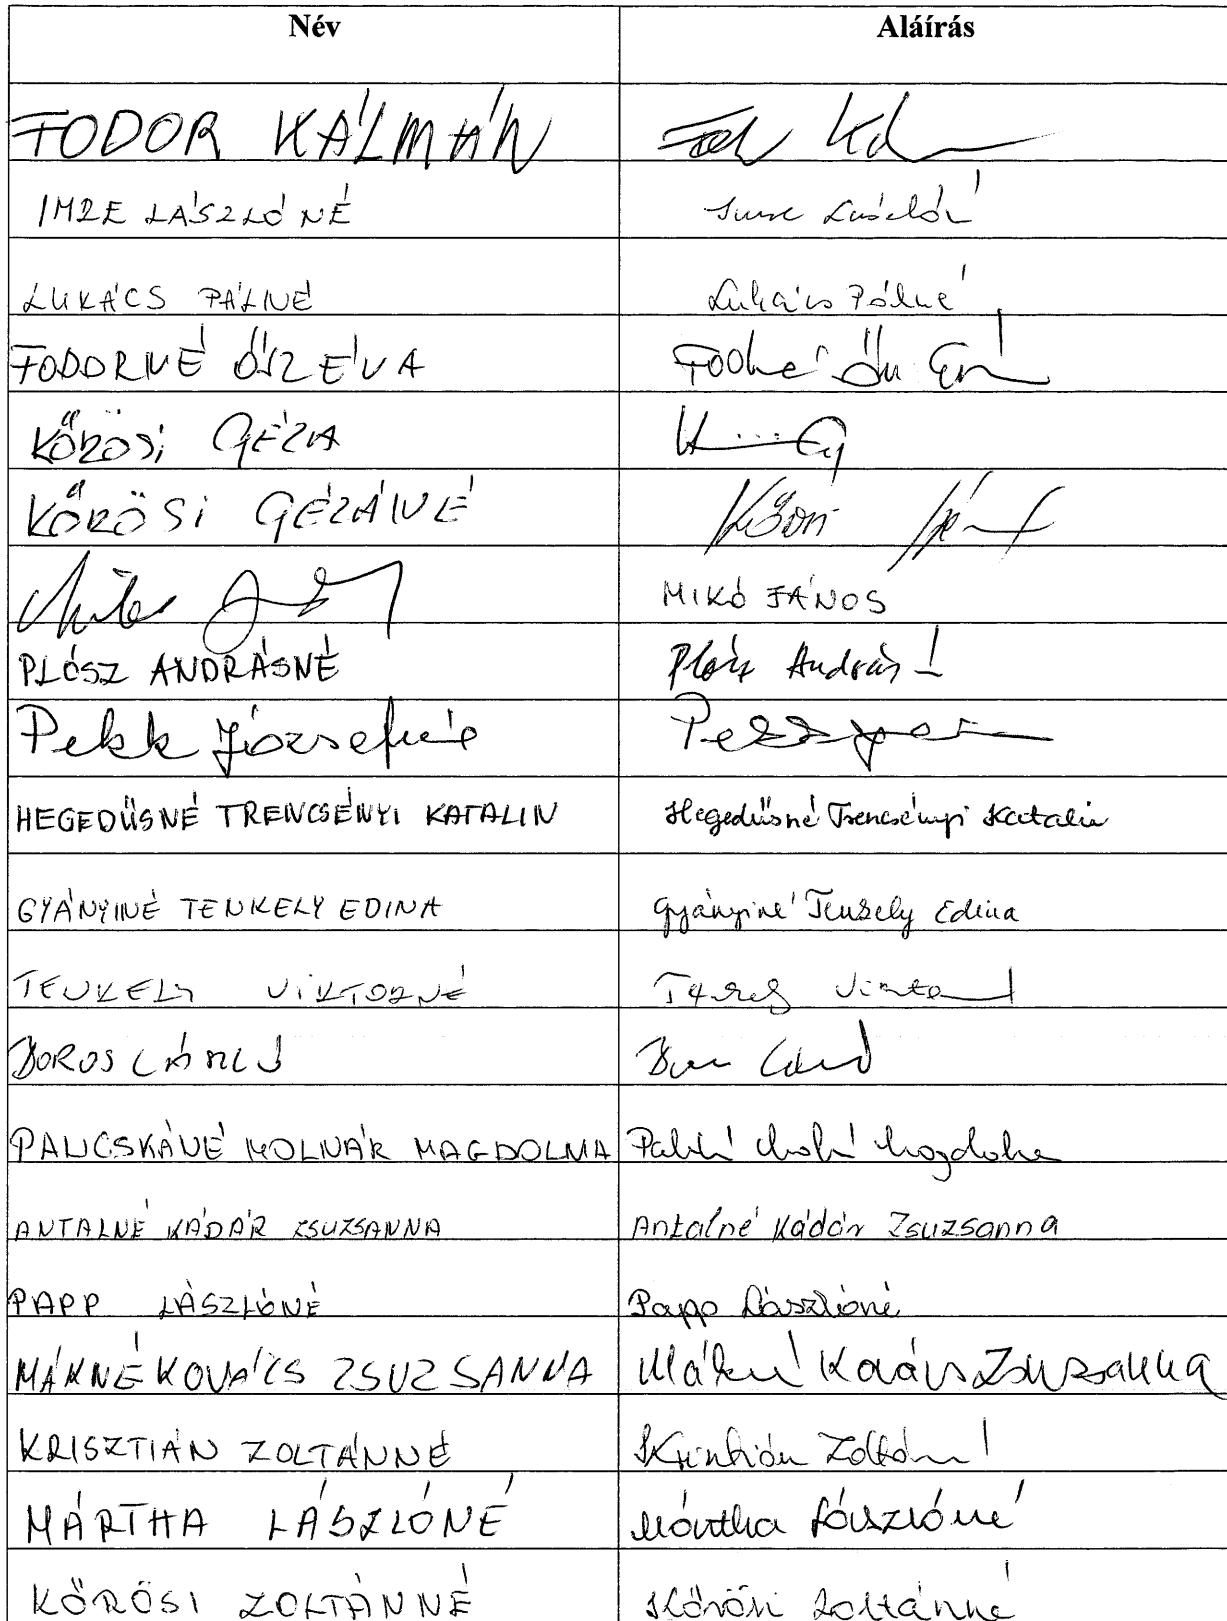 Név Aláírás
FODOR KÁLMÁN
IMRE LÁSZLÓNÉ
LUKÁCS PÁLNÉ Lukács Pálné
FODORNÉ ŐSZ ÉVA
KŐRÖSI GÉZA
KŐRÖSI GÉZÁNÉ
MIKÓ JÁNOS
PLÓSZ ANDRÁSNÉ Plósz András
Pekk Józsefné
HEGEDŰSNÉ TRENCSÉNYI KATALIN Hegedűsné Trencsényi Katalin
GYÁNYINÉ TENKELY EDINA Gyányiné Tenkely Edina
TENKELY VIKTORNÉ
BOROS LÁSZLÓ
PALICSKÁNÉ MOLNÁR MAGDOLNA
ANTALNÉ KÁDÁR ZSUZSANNA Antalné Kádár Zsuzsanna
PAPP LÁSZLÓNÉ Papp Lászlóné
MÁKNÉ KOVÁCS ZSUZSANNA Mákné Kovács Zsuzsanna
KRISZTIÁN ZOLTÁNNÉ Krisztián Zoltán
MÁRTHA LÁSZLÓNÉ Mártha Lászlóné
KŐRÖSI ZOLTÁNNÉ Kőrösi Zoltánné